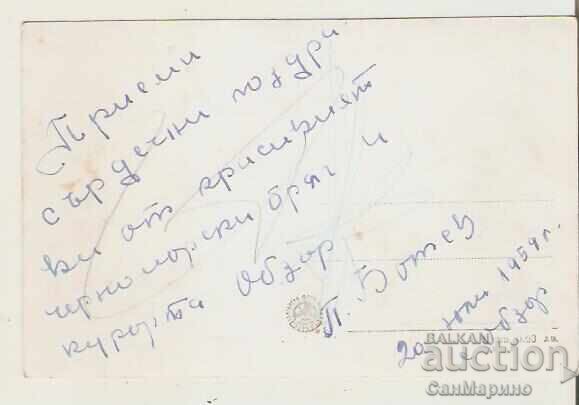 Приеми
сърдечни поздри
ви от красивият
черноморски бряг и
курорта Обзор
П. Ботев
20 юли 1959 г.
Обзор
BALKAN
auction
СанМарино